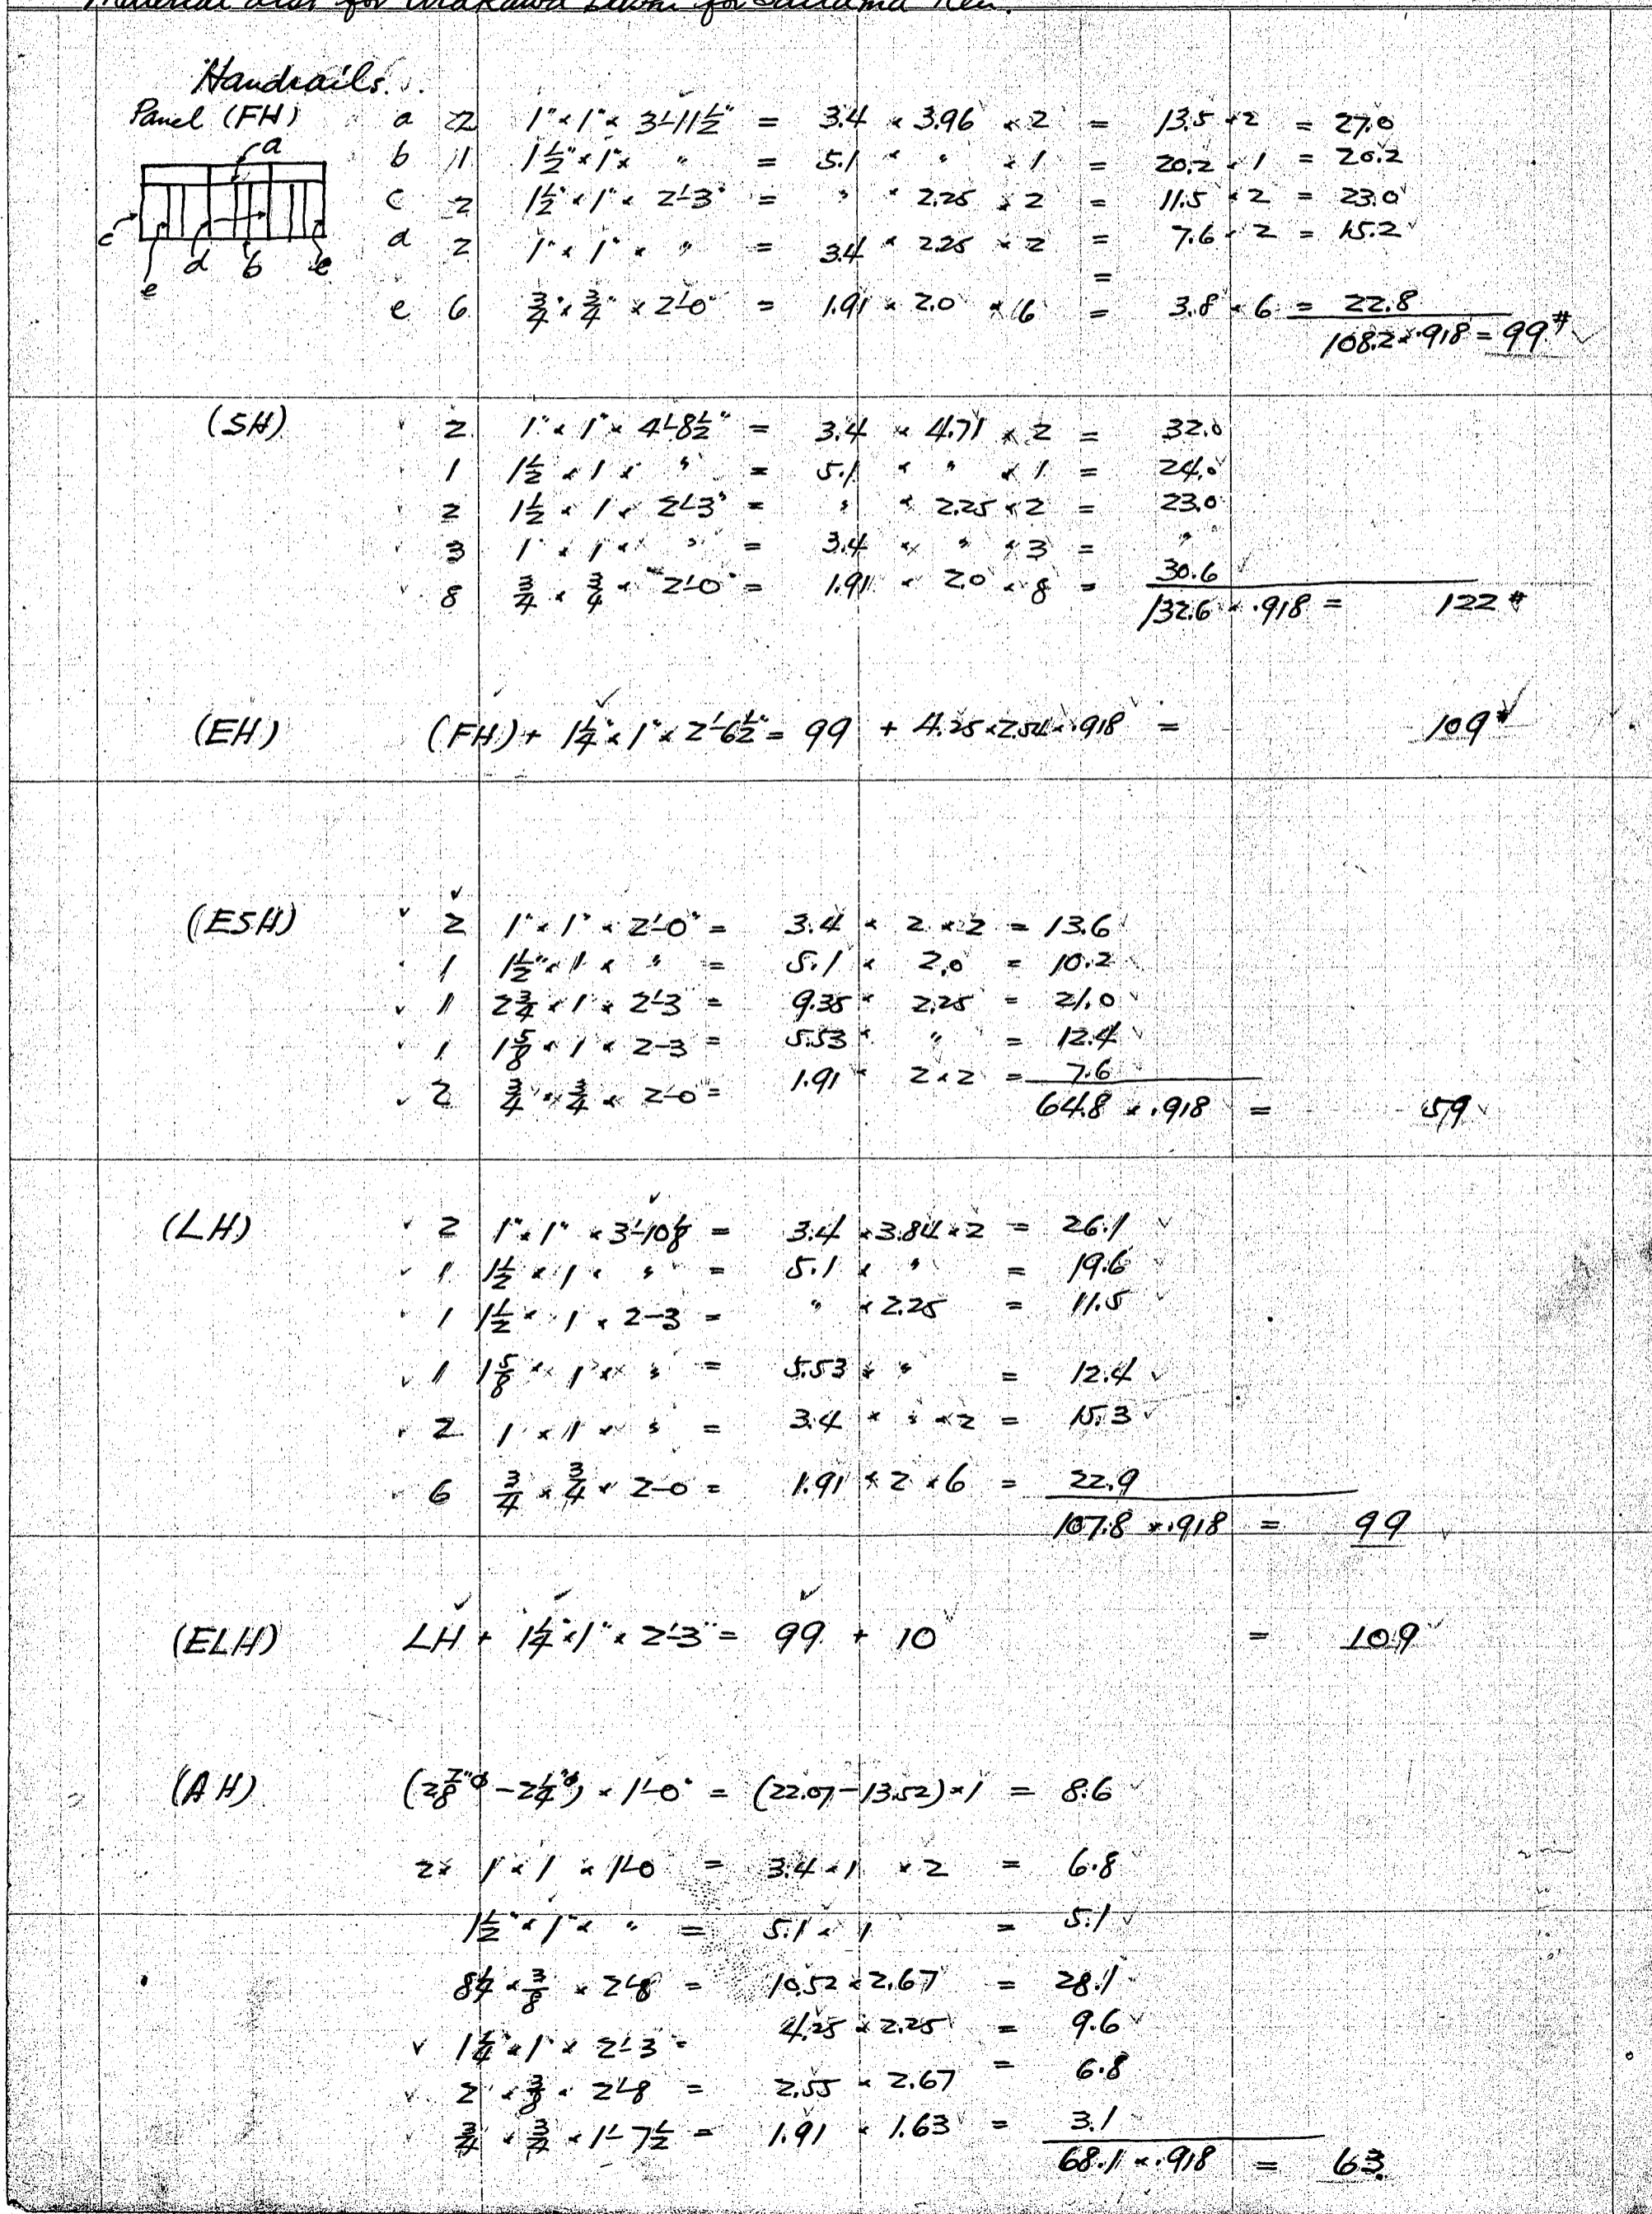 Material List for Arakawa for Saitama Ken.
Handrails.
Panel (FH) a 2 1" × 1" × 3'-11½" = 3.4 × 3.96 × 2 = 13.5 × 2 = 27.0
b 1 1½" × 1" × " = 5.1 × " × 1 = 20.2 × 1 = 20.2
c 2 1½" × 1" × 2'-3" = " × 2.25 × 2 = 11.5 × 2 = 23.0
d 2 1" × 1" × " = 3.4 × 2.25 × 2 = 7.6 × 2 = 15.2
=
e 6 ¾" × ¾" × 2'-0" = 1.91 × 2.0 × 6 = 3.8 × 6 = 22.8
108.2 × .918 = 99#
a
c
d b e
e
(SH) 2 1" × 1" × 4'-8½" = 3.4 × 4.71 × 2 = 32.0
1 1½ × 1 × " = 5.1 × " × 1 = 24.0
2 1½ × 1 × 2'-3" = " × 2.25 × 2 = 23.0
3 1 × 1 × " = 3.4 × " × 3 = "
8 ¾ × ¾ × 2'-0" = 1.91 × 2.0 × 8 = 30.6
132.6 × .918 = 122#
(EH) (FH) + 1¼" × 1" × 2'-6½" = 99 + 4.25 × 2.54 × .918 = 109#
(ESH) 2 1" × 1" × 2'-0" = 3.4 × 2 × 2 = 13.6
1 1½" × 1 × " = 5.1 × 2.0 = 10.2
1 2¾ × 1 × 2'-3 = 9.35 × 2.25 = 21.0
1 1⅝ × 1 × 2-3 = 5.53 × " = 12.4
2 ¾" × ¾ × 2-0" = 1.91 × 2 × 2 = 7.6
64.8 × .918 = 59
(LH) 2 1" × 1" × 3'-10⅛ = 3.4 × 3.84 × 2 = 26.1
1 1½ × 1 × " = 5.1 × " = 19.6
1 1½ × 1 × 2-3 = " × 2.25 = 11.5
1 1⅝ × 1 × " = 5.53 × " = 12.4
2 1 × 1 × " = 3.4 × " × 2 = 15.3
6 ¾ × ¾ × 2-0 = 1.91 × 2 × 6 = 22.9
107.8 × .918 = 99
(ELH) LH + 1¼" × 1" × 2'-3" = 99 + 10 = 109
(AH) (2⅞"φ - 2¼"φ) × 1'-0" = (22.07 - 13.52) × 1 = 8.6
2 × 1 × 1 × 1'-0 = 3.4 × 1 × 2 = 6.8
1½" × 1" × " = 5.1 × 1 = 5.1
8¼ × ⅜ × 2'-8 = 10.52 × 2.67 = 28.1
1¼" × 1" × 2'-3 = 4.25 × 2.25 = 9.6
2 × ⅜ × 2'-8 = 2.55 × 2.67 = 6.8
¾ × ¾ × 1'-7½ = 1.91 × 1.63 = 3.1
68.1 × .918 = 63